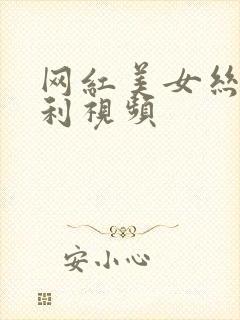 网紅美女絲
利視頻
安小心